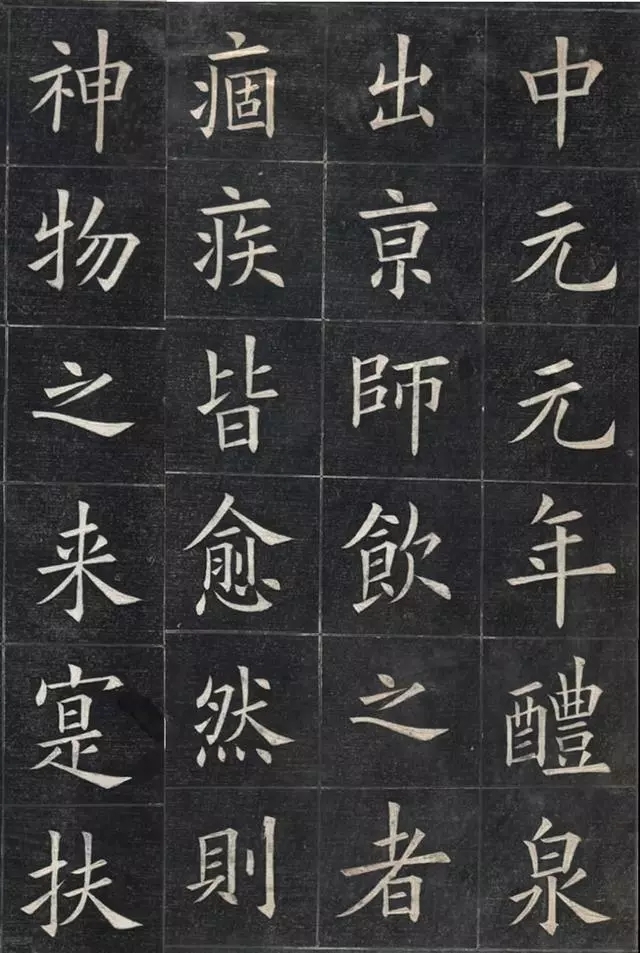 中元元年醴泉
出京師飲之者
痼疾皆愈然則
神物之来寔扶